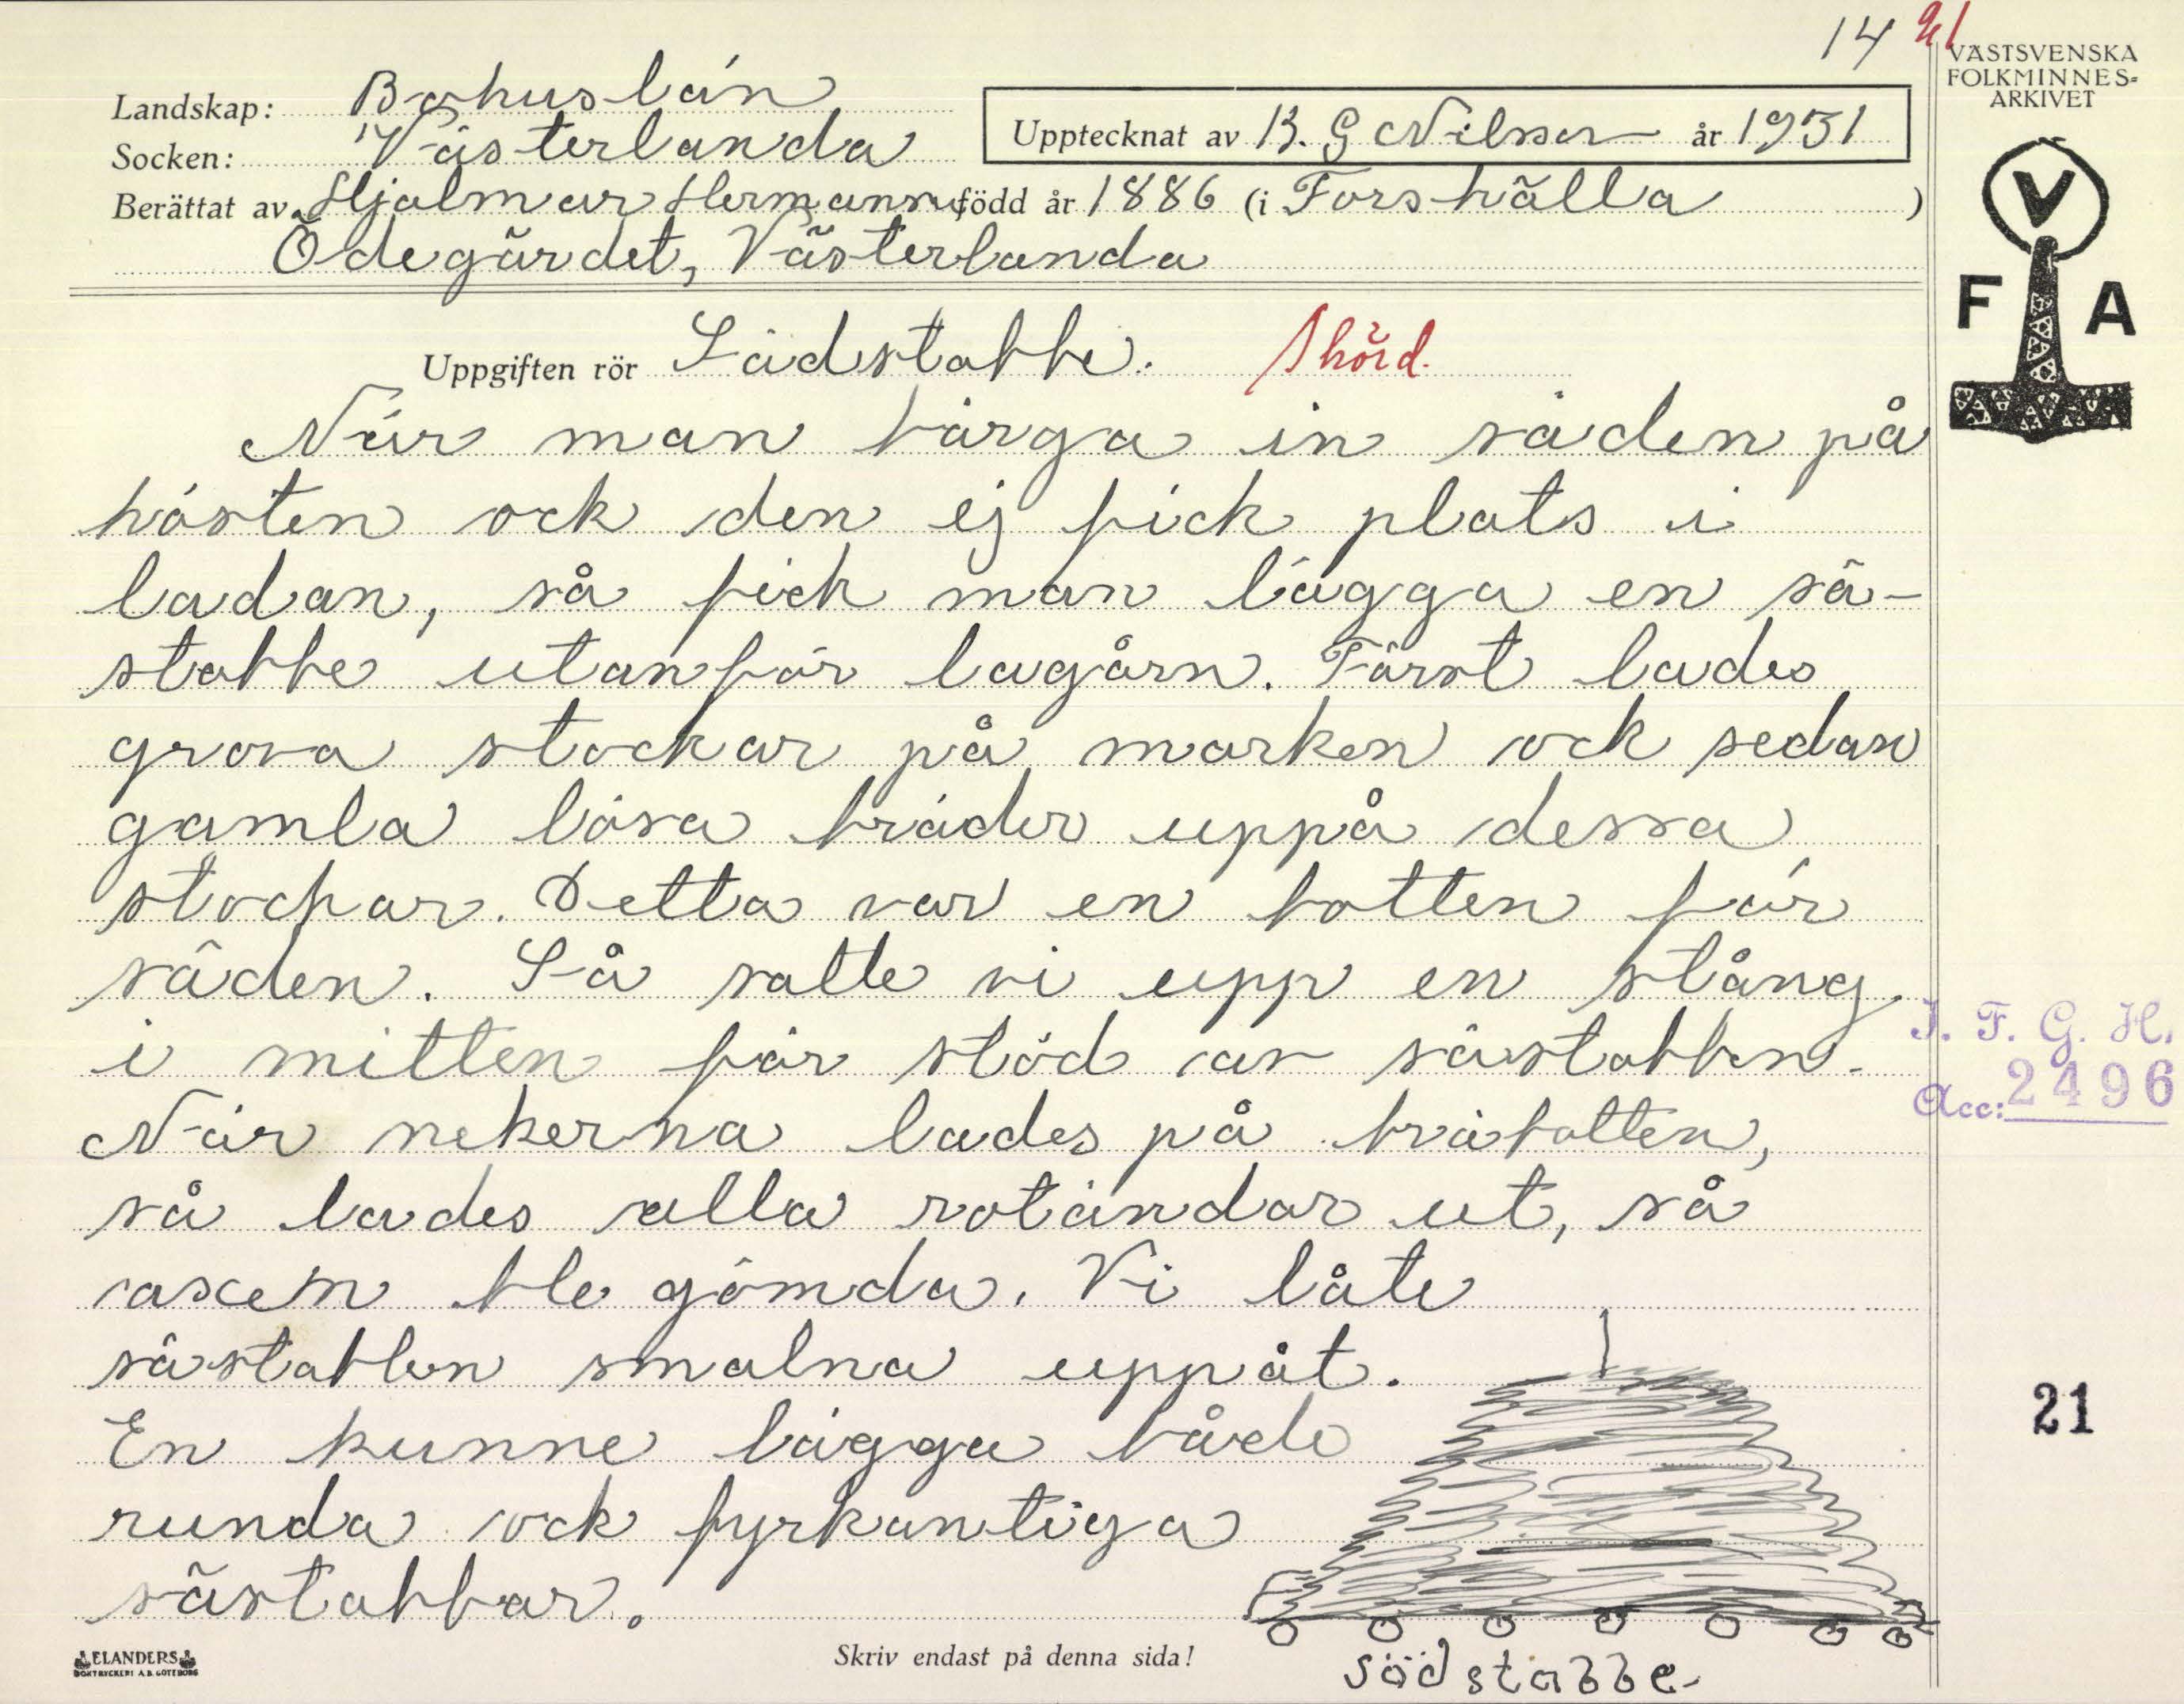 14 21
VÄSTSVENSKA
FOLKMINNES-
ARKIVET
Landskap: Bohuslän
Socken: Västerlanda
Upptecknat av B. G Nilsson år 1931
Berättat av Hjalmar Hermansn född år 1886 (i Forshälla )
Ödegärdet, Västerlanda
V
F A
Uppgiften rör Sädstabbe. Skörd.
När man bärga in säden på
hösten ock den ej fick plats i
ladan, så fick man lägga en sä-
stabbe utanför lagårn. Först lades
grova stockar på marken ock sedan
gamla lösa bräder uppå dessa
stockar. Detta var en botten för
säden. Så satte vi upp en stång
i mitten för stöd av sästabben.
När nekerna lades på bräbotten,
så lades alla rotändar ut, så
axen ble gömda. Vi låte
sästabben smalna uppåt.
En kunne lägga både
runda ock fyrkantiga
sästabbar.
I. F. G. H.
Acc: 2496
21
ELANDERS
BOKTRYCKERI A.B. GÖTEBORG
Skriv endast på denna sida!
södstabbe